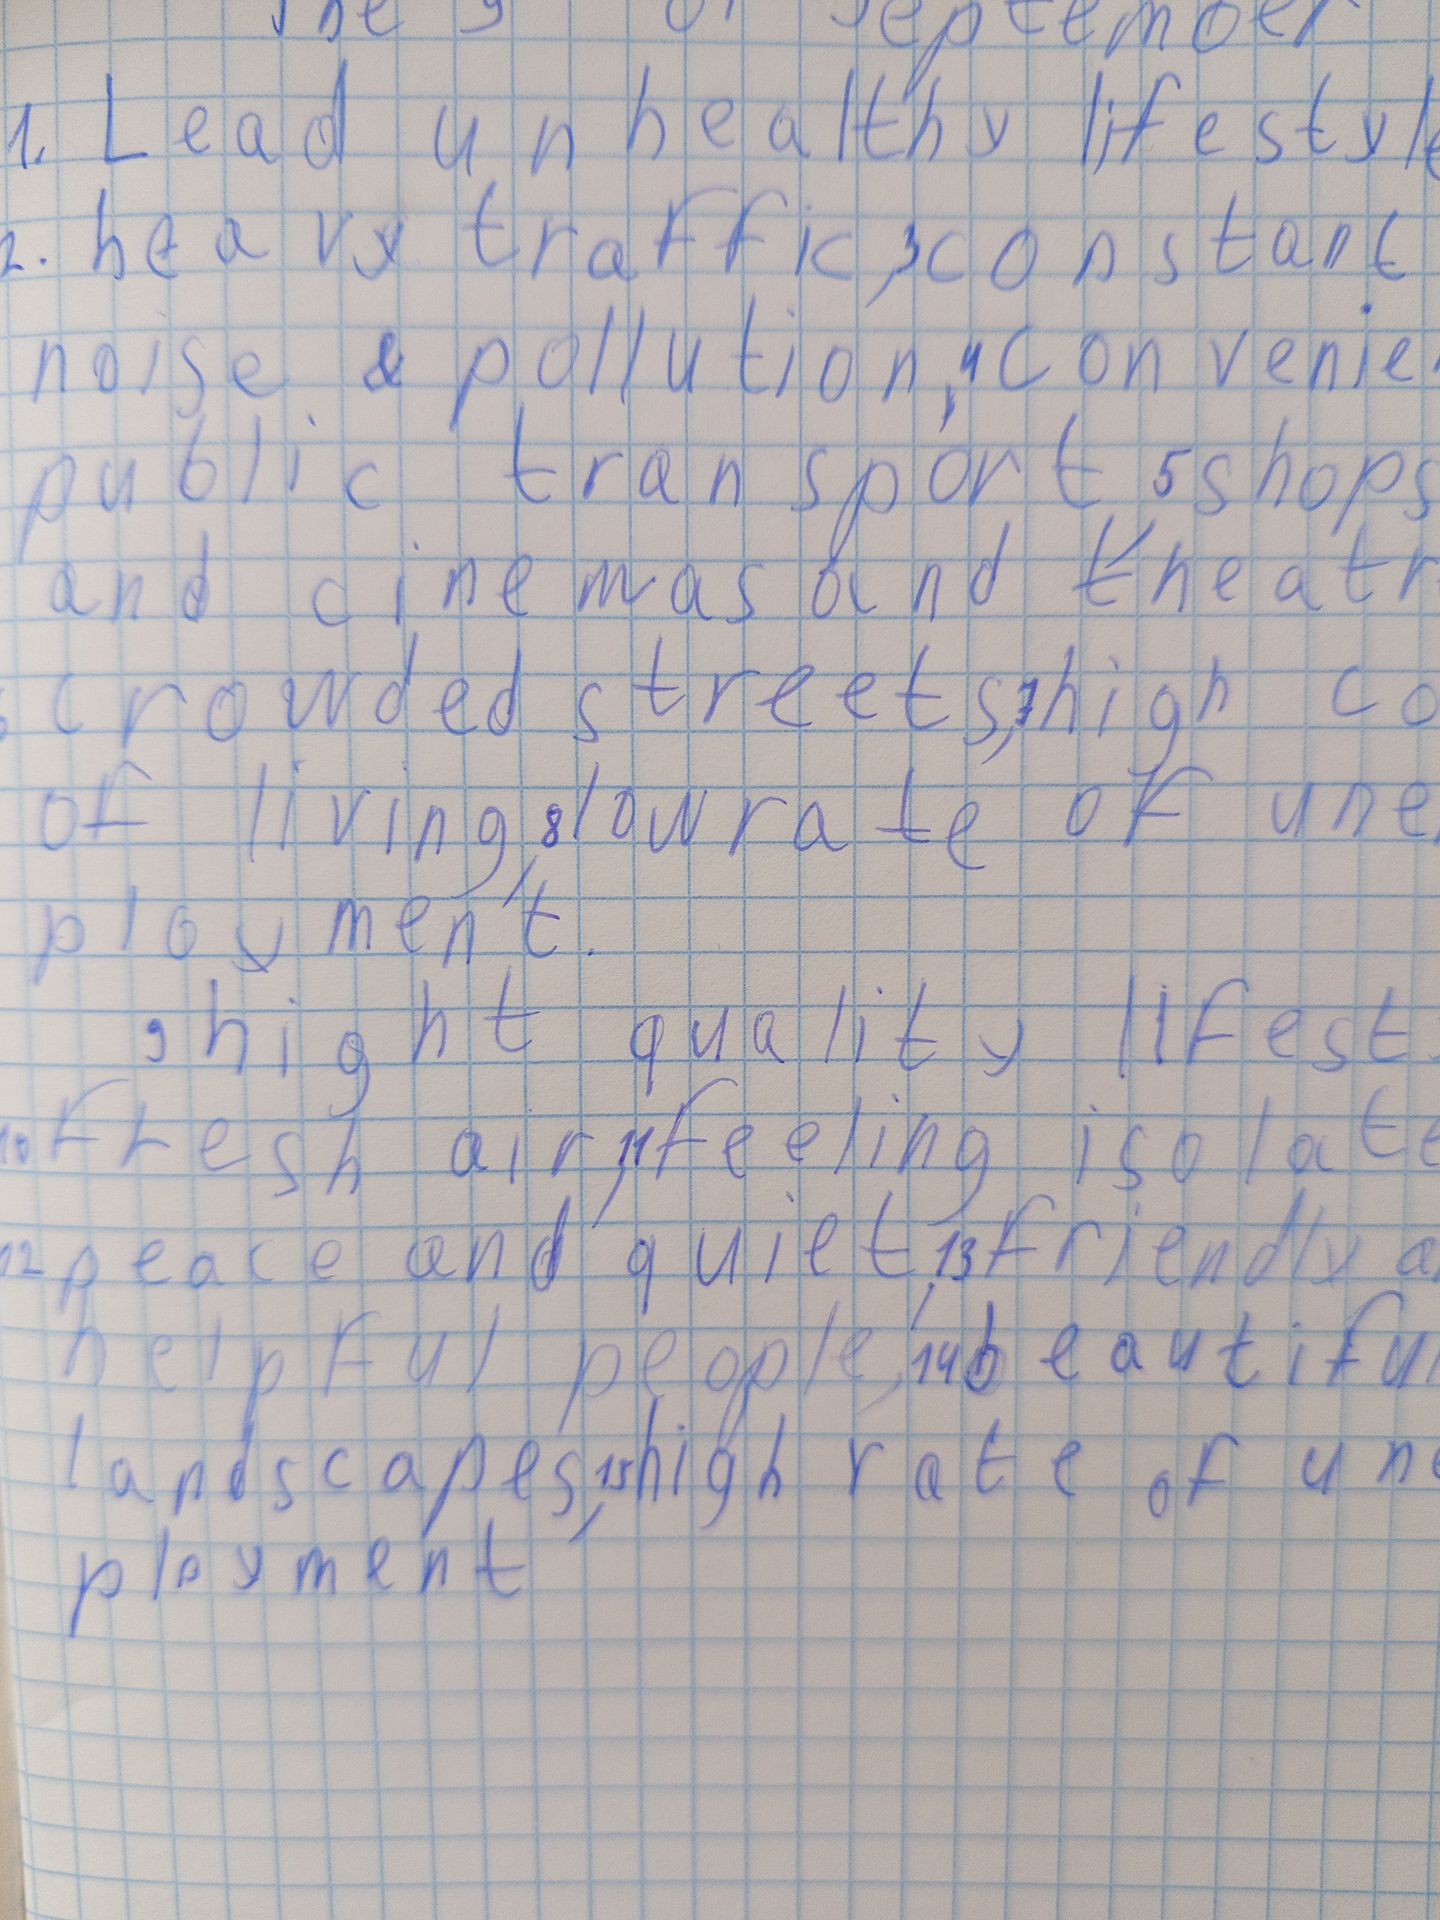 The 9 of September
1. Lead unhealthy lifestyle
2. heavy traffic, 3 constant
noise & pollution, 4 convenien
public transport 5 shops
and cinemas and theatr
6 crowded streets, 7 high co
of living, 8 low rate of une
ployment.
9 hight quality lifest
10 fresh air, 11 feeling isolate
12 peace and quiet, 13 friendly a
helpful people, 14 beautiful
landscapes, 15 high rate of une
ployment